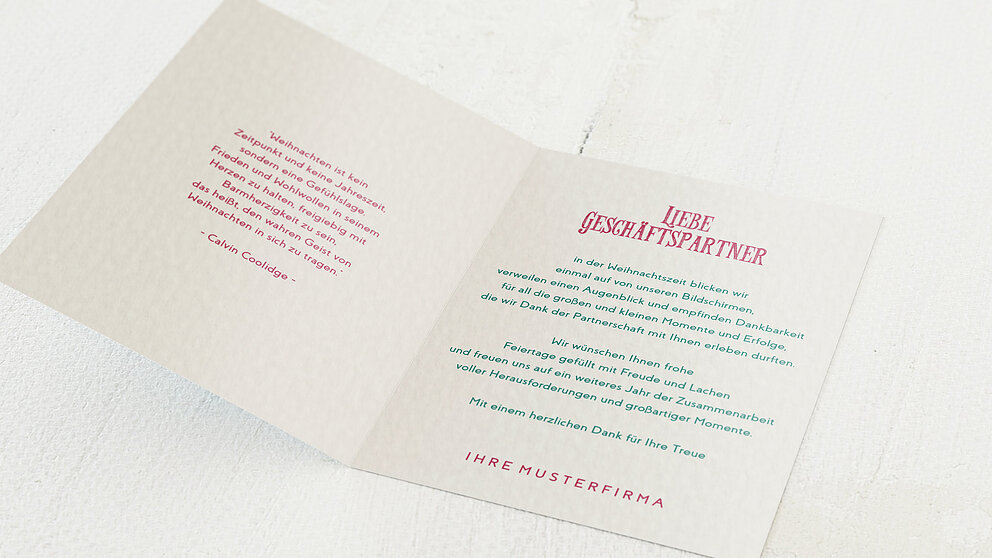 "Weihnachten ist kein
Zeitpunkt und keine Jahreszeit,
sondern eine Gefühlslage.
Frieden und Wohlwollen in seinem
Herzen zu halten, freigiebig mit
Barmherzigkeit zu sein,
das heißt, den wahren Geist von
Weihnachten in sich zu tragen."
- Calvin Coolidge -
LIEBE
GESCHÄFTSPARTNER
in der Weihnachtszeit blicken wir
einmal auf von unseren Bildschirmen,
verweilen einen Augenblick und empfinden Dankbarkeit
für all die großen und kleinen Momente und Erfolge,
die wir Dank der Partnerschaft mit Ihnen erleben durften.
Wir wünschen Ihnen frohe
Feiertage gefüllt mit Freude und Lachen
und freuen uns auf ein weiteres Jahr der Zusammenarbeit
voller Herausforderungen und großartiger Momente.
Mit einem herzlichen Dank für Ihre Treue
IHRE MUSTERFIRMA